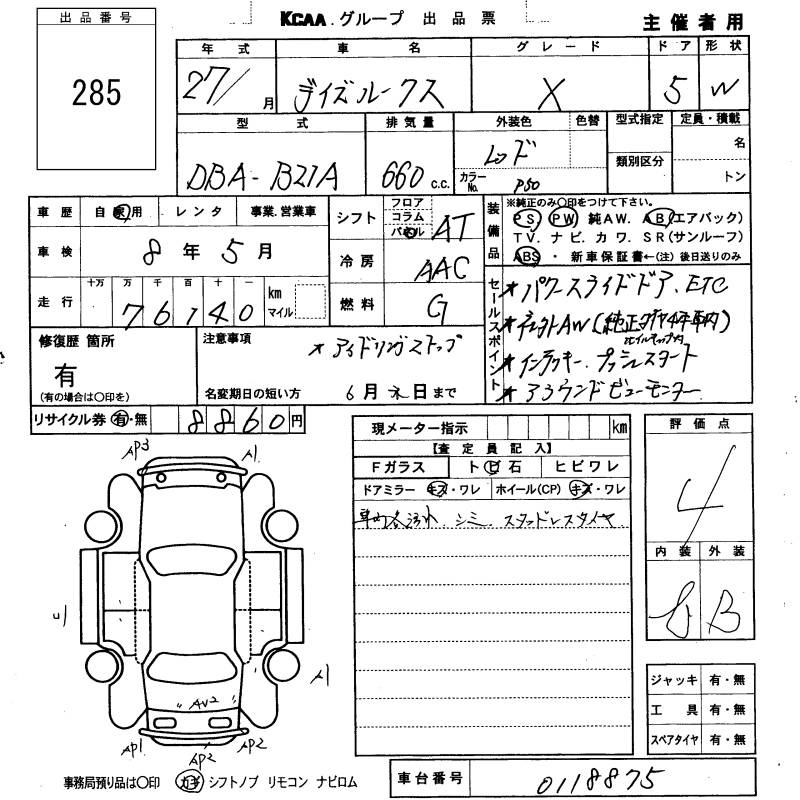 出品番号
285
KCAA.グループ 出品票
主催者用
年式 車名 グレード ドア 形状
27/ 月 デイズルークス X 5 W
型式 排気量 外装色 色替 型式指定 定員・積載
DBA-B21A 660 c.c. レッド 名
カラーNo. P50 類別区分 トン
車歴 自家用 レンタ 事業.営業車
車検 8年5月
走行 十万 万 千 百 十 一 km マイル
76140
シフト フロア コラム パネル AT
冷房 AAC
燃料 G
装備品
※純正のみ〇印をつけて下さい。
PS PW 純AW. AB(エアバック)
TV. ナビ. カワ. SR(サンルーフ)
ABS ・ 新車保証書←(注)後日送りのみ
セールスポイント
★パワースライドドア. ETC
★インテリキー. プッシュスタート
★アラウンドビューモニター
修復歴 箇所
有
(有の場合は〇印を)
注意事項
★アイドリングストップ
名変期日の短い方 6月末日まで
リサイクル券 有・無 8860円
現メーター指示 km
【査定員記入】
Fガラス トビ石 ヒビワレ
ドアミラー キズ・ワレ ホイール(CP) キズ・ワレ
シミ. スタッドレスタイヤ
評価点
4
内装 外装
B
ジャッキ 有・無
工具 有・無
スペアタイヤ 有・無
AP3 A1
U1
A1
AU2
AP1 AP2 AP2
事務局預り品は〇印 カギ シフトノブ リモコン ナビロム
車台番号 0118875